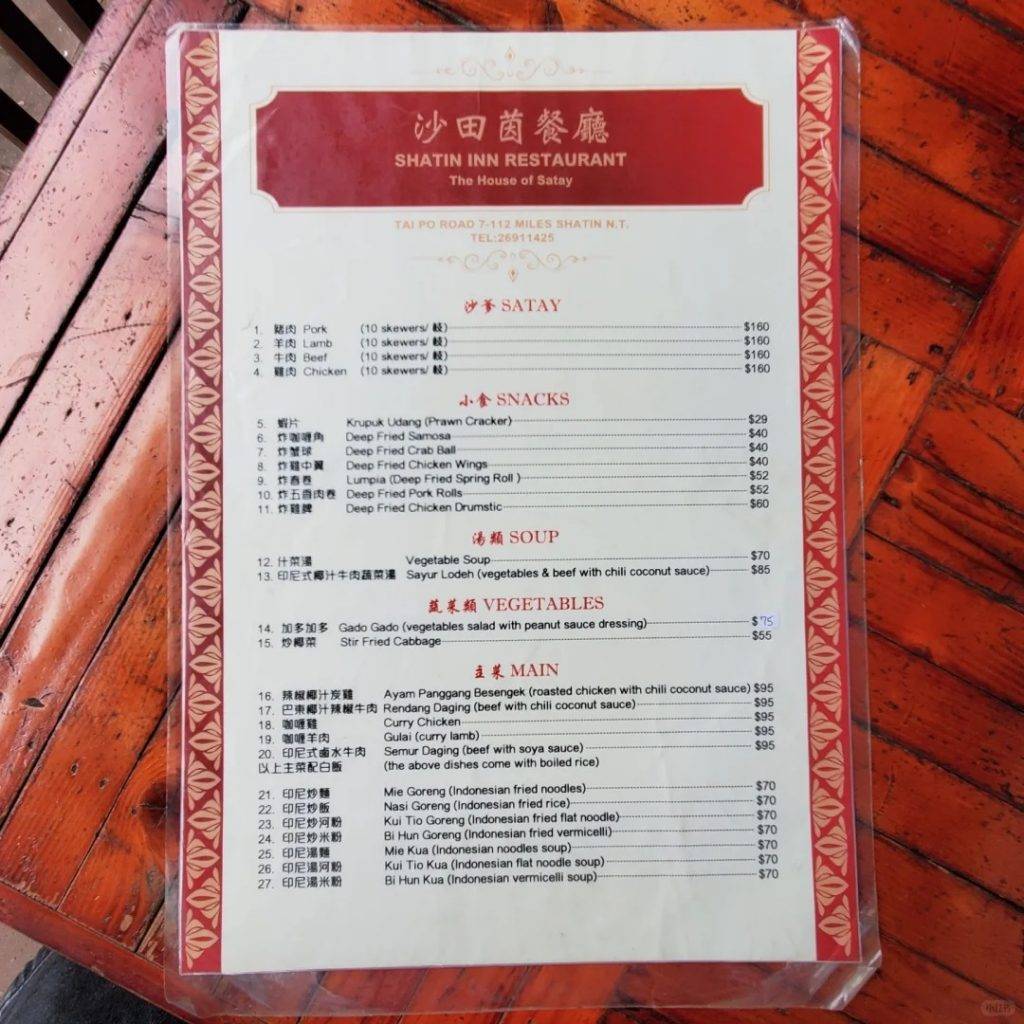 沙田茵餐廳
SHATIN INN RESTAURANT
The House of Satay
TAI PO ROAD 7-112 MILES SHATIN N.T.
TEL:26911425
沙爹 SATAY
1. 豬肉 Pork (10 skewers/ 枝) $160
2. 羊肉 Lamb (10 skewers/ 枝) $160
3. 牛肉 Beef (10 skewers/ 枝) $160
4. 雞肉 Chicken (10 skewers/ 枝) $160
小食 SNACKS
5. 蝦片 Krupuk Udang (Prawn Cracker) $29
6. 炸咖喱角 Deep Fried Samosa $40
7. 炸蟹球 Deep Fried Crab Ball $40
8. 炸雞中翼 Deep Fried Chicken Wings $40
9. 炸春卷 Lumpia (Deep Fried Spring Roll ) $52
10. 炸五香肉卷 Deep Fried Pork Rolls $52
11. 炸雞髀 Deep Fried Chicken Drumstic $60
湯類 SOUP
12. 什菜湯 Vegetable Soup $70
13. 印尼式椰汁牛肉蔬菜湯 Sayur Lodeh (vegetables & beef with chili coconut sauce) $85
蔬菜類 VEGETABLES
14. 加多加多 Gado Gado (vegetables salad with peanut sauce dressing) $75
15. 炒椰菜 Stir Fried Cabbage $55
主菜 MAIN
16. 辣椒椰汁炭雞 Ayam Panggang Besengek (roasted chicken with chili coconut sauce) $95
17. 巴東椰汁辣椒牛肉 Rendang Daging (beef with chili coconut sauce) $95
18. 咖喱雞 Curry Chicken $95
19. 咖喱羊肉 Gulai (curry lamb) $95
20. 印尼式鹵水牛肉 Semur Daging (beef with soya sauce) $95
以上主菜配白飯 (the above dishes come with boiled rice)
21. 印尼炒麵 Mie Goreng (Indonesian fried noodles) $70
22. 印尼炒飯 Nasi Goreng (Indonesian fried rice) $70
23. 印尼炒河粉 Kui Tio Goreng (Indonesian fried flat noodle) $70
24. 印尼炒米粉 Bi Hun Goreng (Indonesian fried vermicelli) $70
25. 印尼湯麵 Mie Kua (Indonesian noodles soup) $70
26. 印尼湯河粉 Kui Tio Kua (Indonesian flat noodle soup) $70
27. 印尼湯米粉 Bi Hun Kua (Indonesian vermicelli soup) $70
小红书